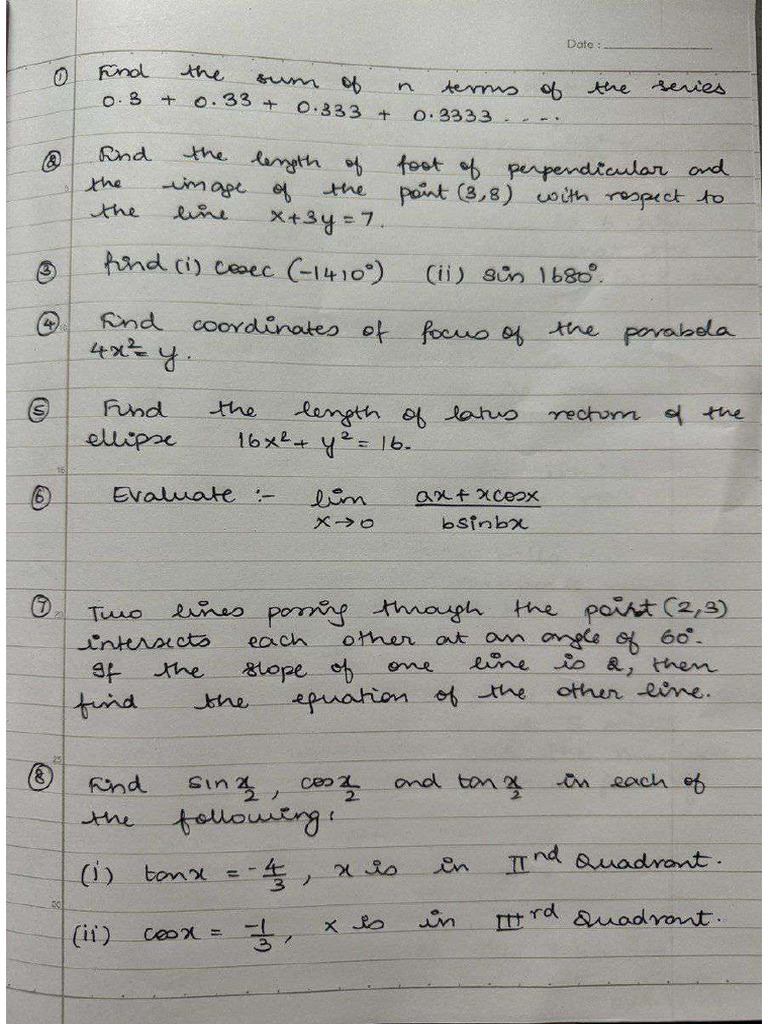 Date :
① Find the sum of n terms of the series
0.3 + 0.33 + 0.333 + 0.3333 .....
② Find the length of foot of perpendicular and
the image of the point (3,8) with respect to
the line x+3y=7.
③ find (i) cosec (-1410°) (ii) sin 1680°.
④ Find coordinates of focus of the parabola
4x²= y.
⑤ Find the length of latus rectum of the
ellipse 16x²+ y²= 16.
⑥ Evaluate :- lim ax+xcosx
x→0 bsinbx
⑦ Two lines passing through the point (2,3)
intersects each other at an angle of 60°.
If the slope of one line is 2, then
find the equation of the other line.
⑧ Find sin x/2, cos x/2 and tan x/2 in each of
the following:
(i) tanx = -4/3, x is in IInd Quadrant.
(ii) cosx = -1/3, x is in IIIrd Quadrant.